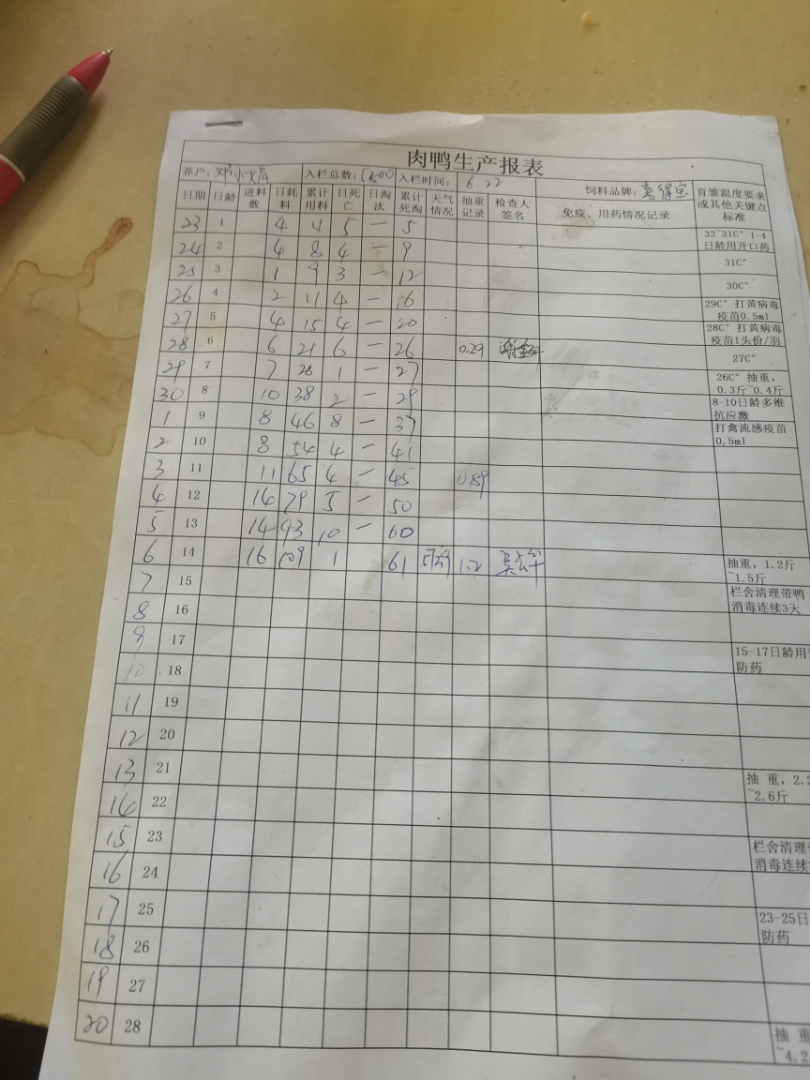 肉鸭生产报表
养户: 入栏总数: 入栏时间: 6.22 饲料品牌: 育雏温度要求或其他关键点标准
日期 日龄 进料数 日耗料 累计用料 日死亡 日淘汰 累计死淘 天气情况 抽重记录 检查人签名 免疫、用药情况记录
23 1 4 4 5 一 5 32~31C° 1-4日龄用开口药
24 2 4 8 4 一 9 31C°
25 3 1 9 3 一 12 30C°
26 4 2 11 4 一 16 29C° 打黄病毒疫苗0.5ml
27 5 4 15 4 一 20 28C° 打黄病毒疫苗1头份/羽
28 6 6 21 6 一 26 0.29 27C°
29 7 7 28 1 一 27 26C° 抽重,0.3斤~0.4斤
30 8 10 38 2 一 29 8-10日龄多维抗应激
1 9 8 46 8 一 37 打禽流感疫苗0.5ml
2 10 8 54 4 一 41
3 11 11 65 4 一 45 0.89
4 12 14 79 5 一 50
5 13 14 93 10 一 60
6 14 16 109 1 61 1.2 抽重,1.2斤~1.5斤
7 15 栏舍清理带鸭消毒连续3天
8 16
9 17 15-17日龄用 防药
10 18
11 19
12 20
13 21 抽重,2.2 ~2.6斤
14 22
15 23 栏舍清理 消毒连续
16 24
17 25 23-25日 防药
18 26
19 27
20 28 抽重 ~4.2